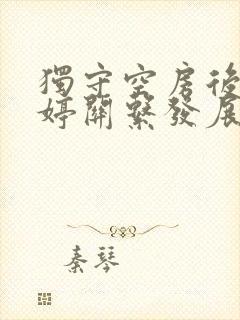 獨守空房後
婷關繫發展
秦琴